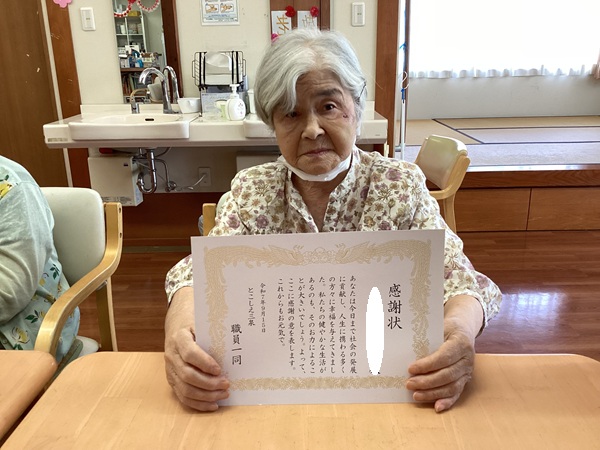 感謝状
あなたは今日まで社会の発展
に貢献し、人生に携わる多く
の方々に幸福を与えてきまし
た。私たちの健やかな生活が
あるのも、そのお力によるこ
とが大きいでしょう。よって、
ここに感謝の意を表します。
これからもお元気で。
令和７年９月１５日
職員一同